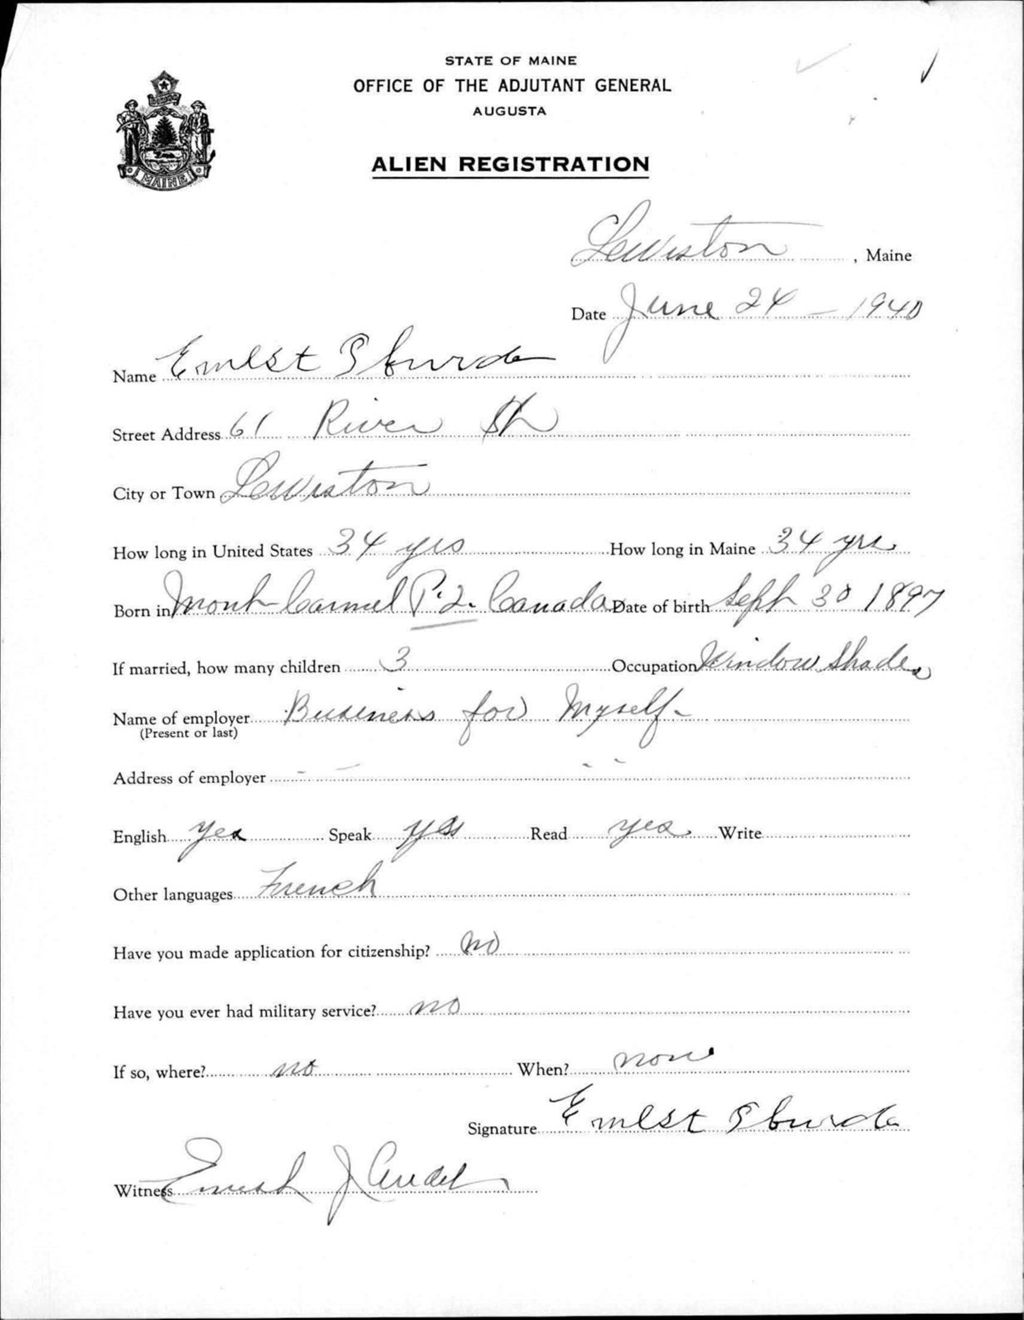 STATE OF MAINE
OFFICE OF THE ADJUTANT GENERAL
AUGUSTA
ALIEN REGISTRATION
MAINE
Lewiston, Maine
Date June 24 - 1940
Name Ernest
Street Address 61 River St
City or Town Lewiston
How long in United States 34 yrs How long in Maine 34 yrs
Born in Mont Carmel P.Q. Canada Date of birth Sept 30 1897
If married, how many children 3 Occupation Window Shades
Name of employer Business for Myself -
(Present or last)
Address of employer - - - -
English yes Speak yes Read yes Write
Other languages French
Have you made application for citizenship? no
Have you ever had military service? no
If so, where? no When? none
Signature Ernest
Witness J